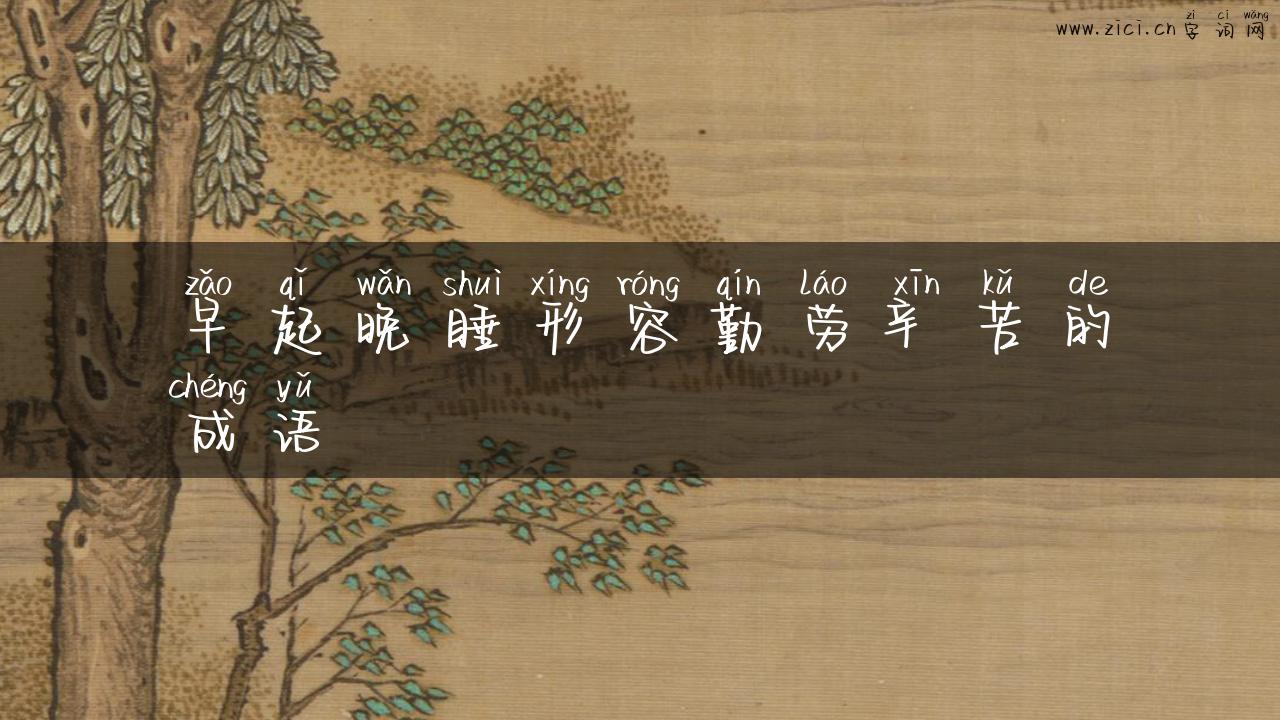 zì cí wǎng
www.zici.cn 字词网
zǎo qǐ wǎn shuì xíng róng qín láo xīn kǔ de
早起晚睡形容勤劳辛苦的
chéng yǔ
成语